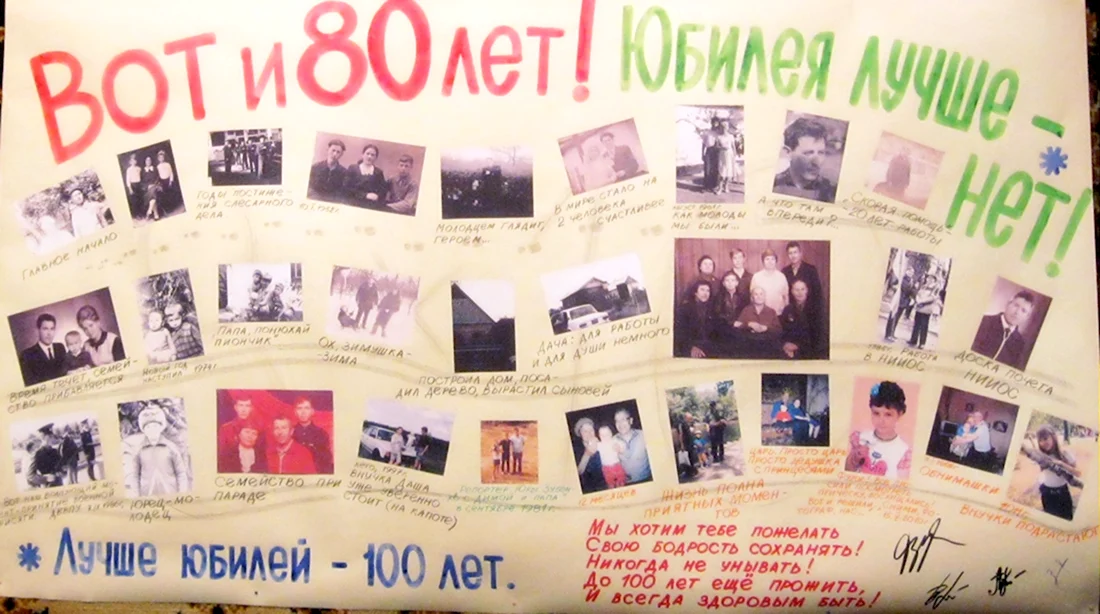 Вот и 80 лет! Юбилея лучше -
* Нет!
Главное начало
Годы постиже-
ния слесарного
дела
Молодцем глядит,
героем...
В мире стало на
2 человека
счастливее
Как молоды
мы были...
А что там
впереди?
Скорая помощь-
20 лет работы
Время течет, семей-
ство прибавляется
Новый год
наступил
Папа, понюхай
"пиончик"
Ох, зимушка-
зима
Построил дом, поса-
дил дерево, вырастил сыновей
Дача: для работы
и для души немного
работа
в НИИОС
Доска почёта
НИИОС
Семейство при
параде
лето, 1997г.
Внучка Даша
уже уверенно
стоит (на капоте)
с Димой и папа
в сентябре 1981г.
месяцев
Жизнь полна
приятных момен-
тов
Царь, просто царь
просто дедушка
Обнимашки
Внучки подрастают
* Лучше юбилей - 100 лет.
Мы хотим тебе пожелать
Свою бодрость сохранять!
Никогда не унывать!
До 100 лет ещё прожить,
И всегда здоровым быть!